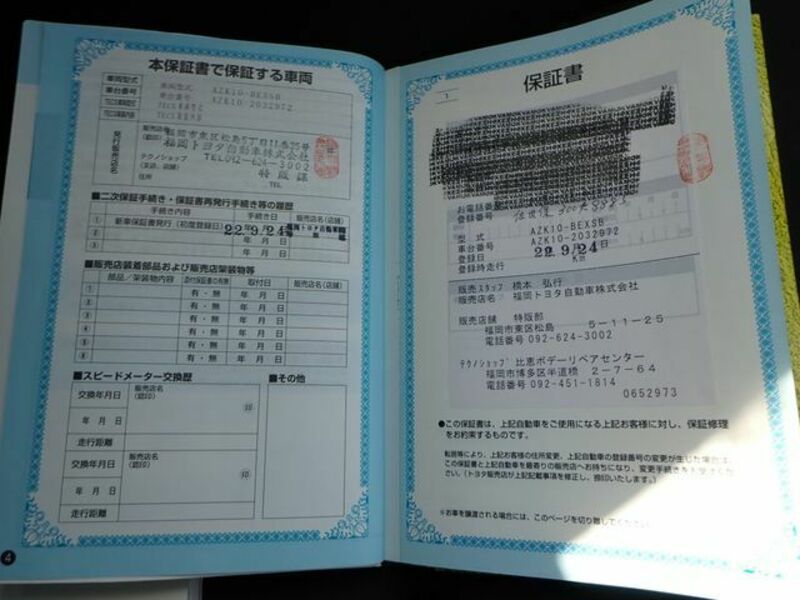 本保証書で保証する車両
車両型式 車両型式 AZK10-BEXSB
車台番号 車台番号 AZK10-2032972
発行販売店名
販売店名 福岡市東区松島5丁目11番25号
(認印) 福岡トヨタ自動車株式会社
テクノショップ TEL092-624-3002
(支店、店舗) 特販課
住所 TEL
■二次保証手続き・保証書再発行手続き等の履歴
手続き内容 手続き日 販売店名(店舗)
① 新車保証書発行(初度登録日) 22.9/24 福岡トヨタ自動車
② 年 月 日
③ 年 月 日
■販売店装着部品および販売店架装物等
部品/架装物内容 添付保証書の有無 取付日 販売店名(店舗)
① 有・無 年 月 日
② 有・無 年 月 日
③ 有・無 年 月 日
④ 有・無 年 月 日
⑤ 有・無 年 月 日
⑥ 有・無 年 月 日
■スピードメーター交換歴
交換年月日 販売店名
(認印)
年 月 日 印
走行距離
交換年月日 販売店名
(認印)
年 月 日 印
走行距離
■その他
4
保証書
1
お電話番号
登録番号 佐世保 300
型式 AZK10-BEXSB
車台番号 AZK10-2032972
登録日 22.9/24
登録時走行 Km
販売スタッフ 橋本 弘行
販売店名 福岡トヨタ自動車株式会社
販売店舗 特販部
福岡市東区松島 5-11-25
電話番号 092-624-3002
テクノショップ 比恵ボデーリペアセンター
福岡市博多区半道橋 2-7-64
電話番号 092-451-1814
0652973
●この保証書は、上記自動車をご使用になる上記お客様に対し、保証修理
をお約束するものです。
転居等により、上記お客様の住所変更、上記自動車の登録番号の変更が生じた場合は、
この保証書と上記自動車を最寄りの販売店へお持ちになり、変更手続きをお受けくださ
い。(トヨタ販売店が上記記載事項を修正し、捺印いたします。)
※お車を譲渡される場合には、このページを切り離してください。